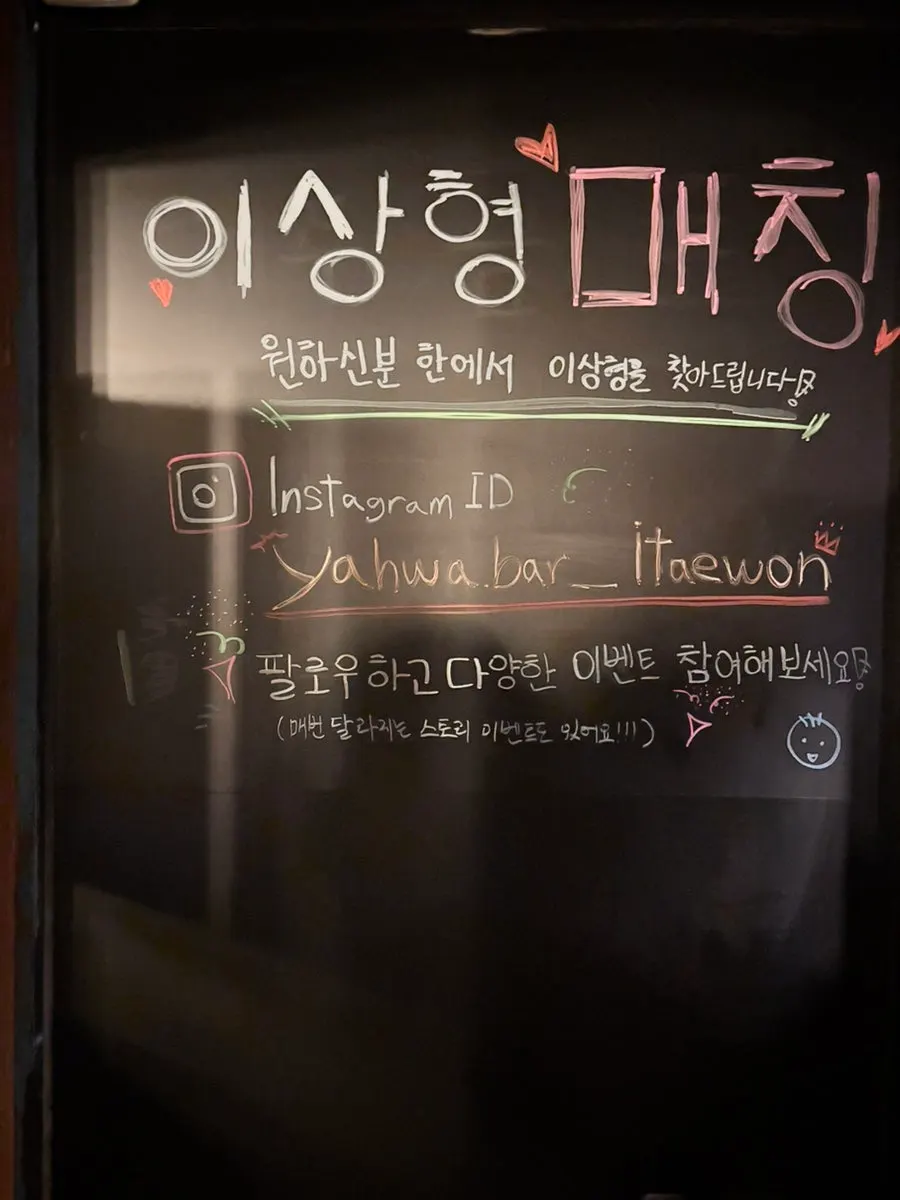 이상형 매칭
원하신분 한에서 이상형을 찾아드립니다!
Instagram ID
yahwa.bar_Itaewon
팔로우하고 다양한 이벤트 참여해보세요!
(매번 달라지는 스토리 이벤트도 있어요!!!)